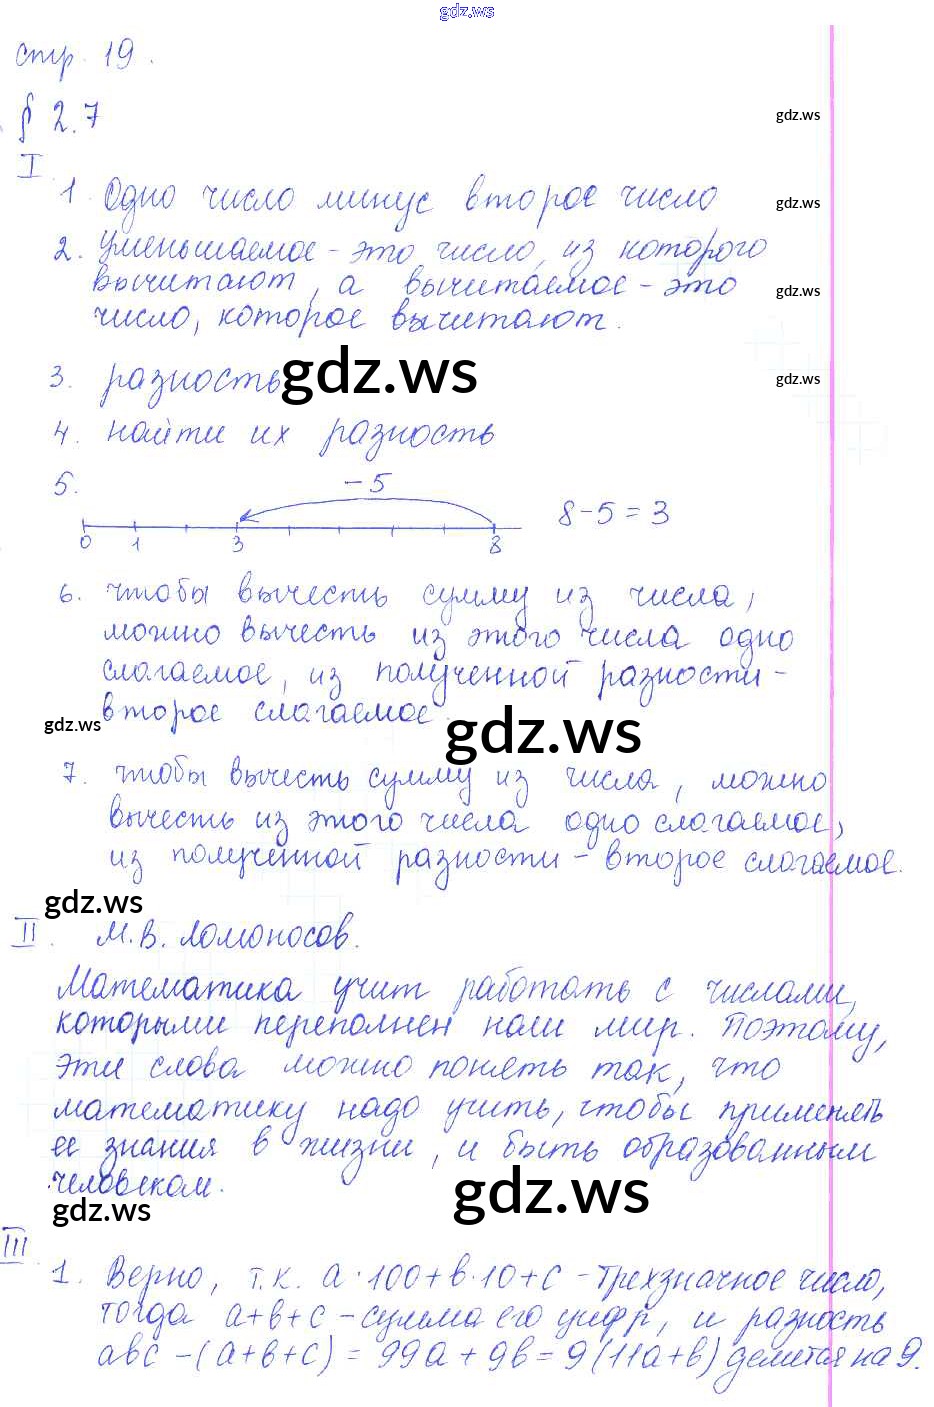 gdz.ws
стр. 19.
§ 2.7
gdz.ws
I
1. Одно число минус второе число
gdz.ws
2. Уменьшаемое - это число, из которого
вычитают, а вычитаемое - это
gdz.ws
число, которое вычитают.
3. разность
gdz.ws
gdz.ws
4. найти их разность
5.
-5
0 1 3 8
8-5=3
6. чтобы вычесть сумму из числа,
можно вычесть из этого числа одно
слагаемое, из полученной разности -
второе слагаемое.
gdz.ws
gdz.ws
7. чтобы вычесть сумму из числа, можно
вычесть из этого числа одно слагаемое,
из полученной разности - второе слагаемое.
gdz.ws
II. М.В. Ломоносов.
Математика учит работать с числами,
которыми переполнен наш мир. Поэтому,
эти слова можно понять так, что
математику надо учить, чтобы применять
ее знания в жизни, и быть образованным
человеком.
gdz.ws
gdz.ws
III
1. Верно, т.к. a·100+b·10+c - трехзначное число,
тогда a+b+c - сумма его цифр, и разность
abc - (a+b+c) = 99a + 9b = 9(11a+b) делится на 9.